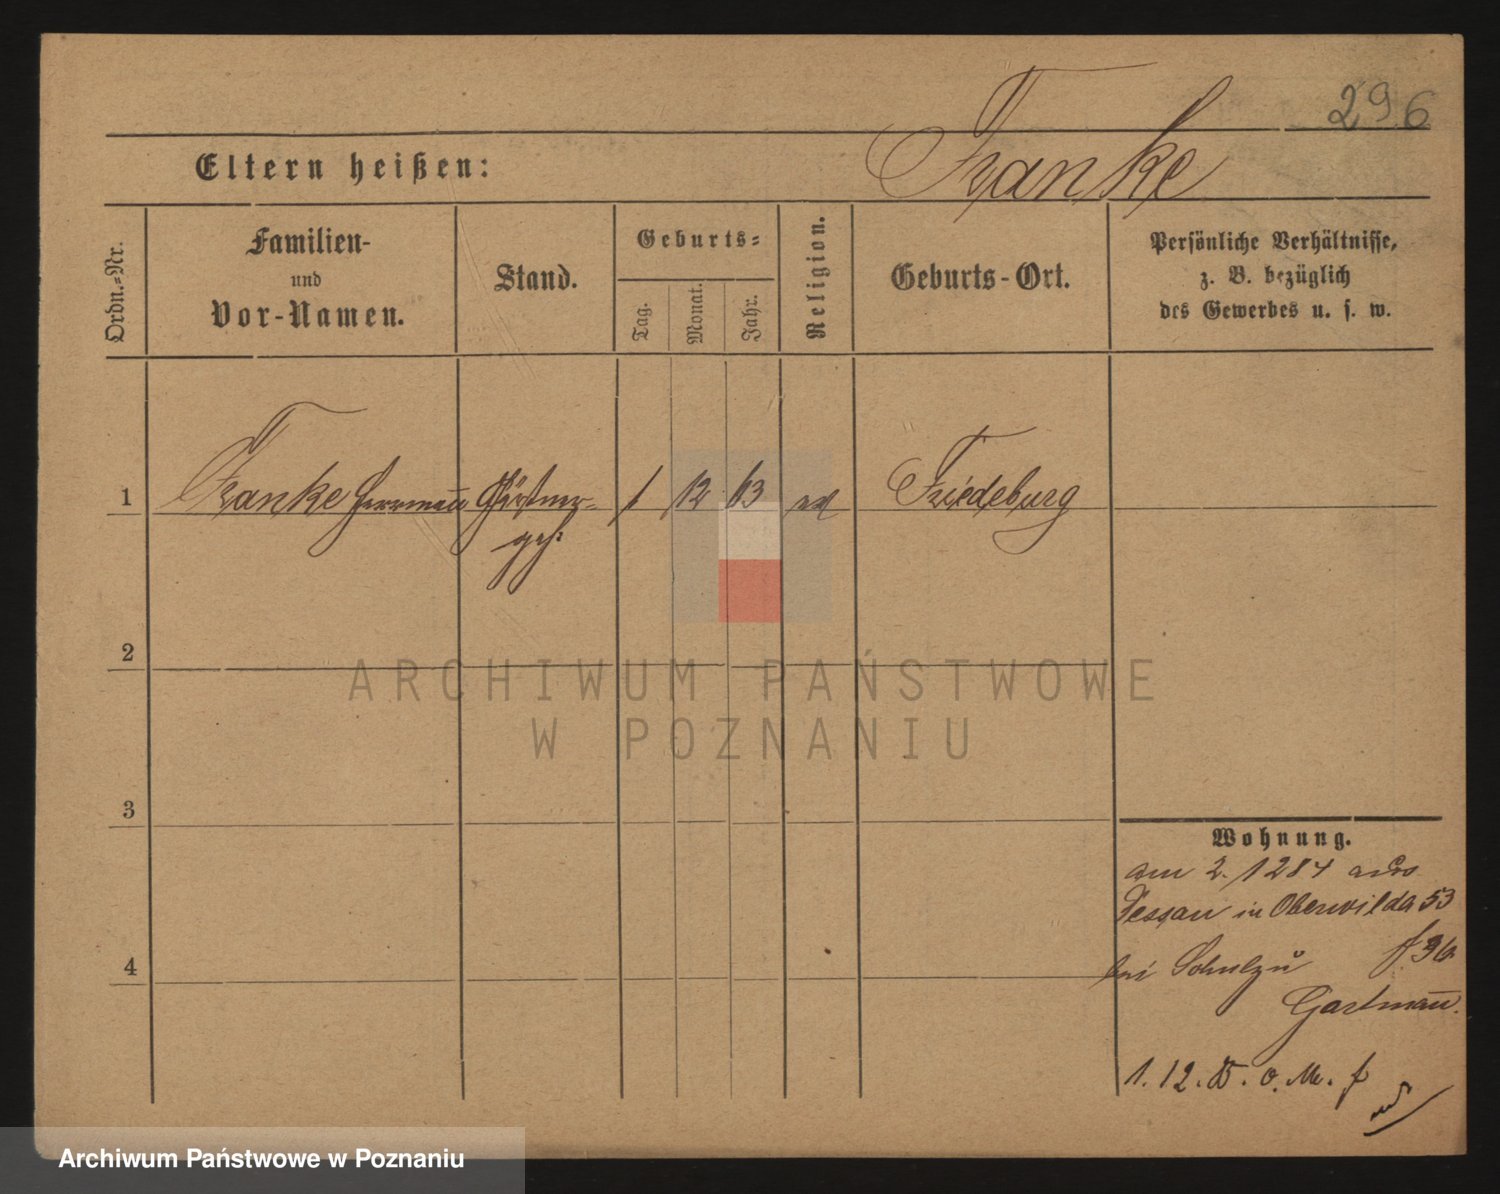 296
Franke
Eltern heißen:
Ordn.-Nr.
Familien-
und
Vor-Namen.
Stand.
Geburts-
Tag.
Monat.
Jahr.
Religion.
Geburts-Ort.
Persönliche Verhältnisse,
z. B. bezüglich
des Gewerbes u. s. w.
1 Franke Herrmann Gärtner-
geh. 1 12 63 Friedeburg
2
ARCHIWUM PAŃSTWOWE
W POZNANIU
3
Wohnung.
am 2. 12 84 aus
Dessau in Oberwilda 53
4
bei
Gartmann.
1. 12. 85. o. M. f
Archiwum Państwowe w Poznaniu